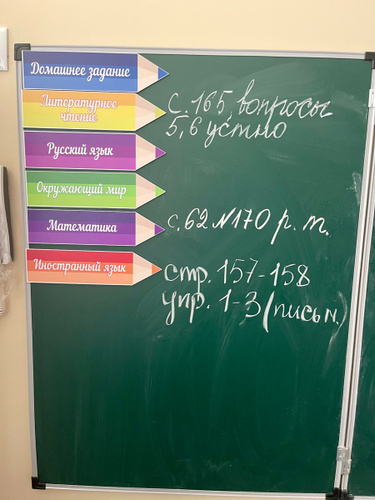 Домашнее задание
Литературное
чтение
с. 165, вопросы
5, 6 устно
Русский язык
Окружающий мир
Математика
с. 62 №170 р. т.
Иностранный язык
стр. 157-158
упр. 1-3 (письм.)